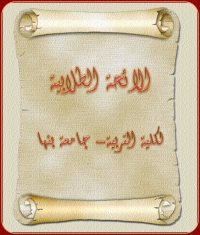 الائحة الطلابية
لكلية التربية - جامعة بنها